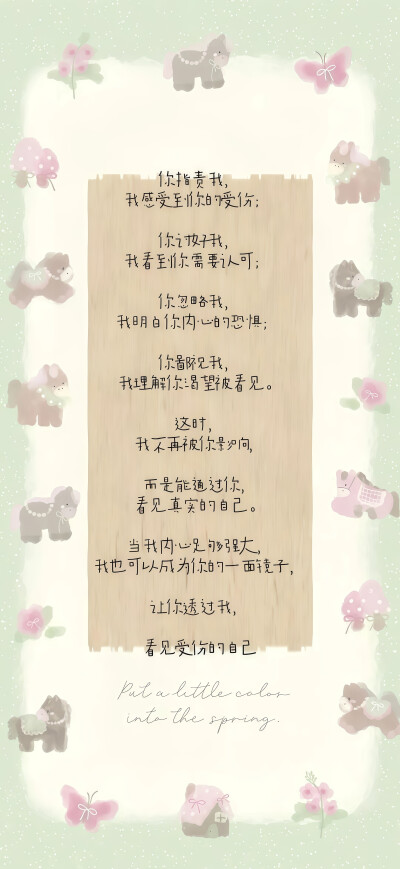 你指责我，
我感受到你的受伤；
你讨好我，
我看到你需要认可；
你忽略我，
我明白你内心的恐惧；
你鄙视我，
我理解你渴望被看见。
这时，
我不再被你影响，
而是能通过你，
看见真实的自己。
当我内心足够强大，
我也可以成为你的一面镜子，
让你透过我，
看见受伤的自己
Put a little color
into the spring.